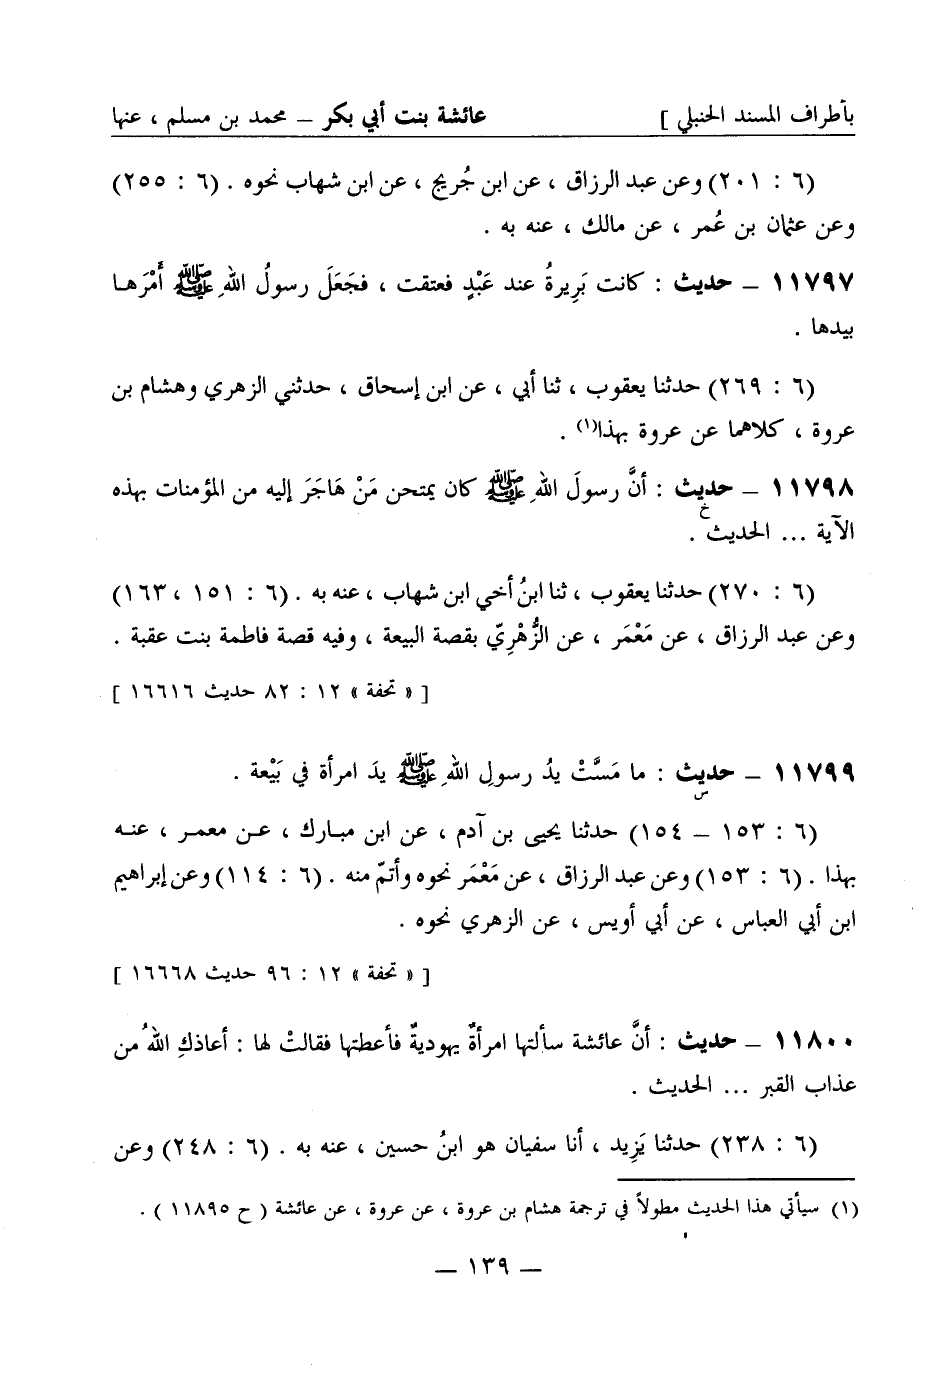 بأطراف المسند الحنبلي ] عائشة بنت أبي بكر – محمد بن مسلم ، عنها
(٦ : ٢٠١) وعن عبد الرزاق ، عن ابن جُريج ، عن ابن شهاب نحوه . (٦ : ٢٥٥)
وعن عثمان بن عُمر ، عن مالك ، عنه به .
١١٧٩٧ – حديث : كانت بَرِيرةُ عند عَبْدٍ فعتقت ، فجَعَلَ رسولُ اللهِ ﷺ أَمْرَها
بيدها .
(٦ : ٢٦٩) حدثنا يعقوب ، ثنا أبي ، عن ابن إسحاق ، حدثني الزهري وهشام بن
عروة ، كلاهما عن عروة بهذا(١) .
١١٧٩٨ – حديث : أنَّ رسولَ اللهِ ﷺ كان يمتحن مَنْ هَاجَرَ إليه من المؤمنات بهذه
خ
الآية ... الحديث .
(٦ : ٢٧٠) حدثنا يعقوب ، ثنا ابنُ أخي ابن شهاب ، عنه به . (٦ : ١٥١ ، ١٦٣)
وعن عبد الرزاق ، عن مَعْمَر ، عن الزُّهْرِيّ بقصة البيعة ، وفيه قصة فاطمة بنت عقبة .
[ « تحفة » ١٢ : ٨٢ حديث ١٦٦١٦ ]
١١٧٩٩ – حديث : ما مَسَّتْ يدُ رسولِ اللهِ ﷺ يدَ امرأة في بَيْعة .
س
(٦ : ١٥٣ – ١٥٤) حدثنا يحيى بن آدم ، عن ابن مبارك ، عن معمر ، عنه
بهذا . (٦ : ١٥٣) وعن عبد الرزاق ، عن مَعْمَر نحوه وأتمّ منه . (٦ : ١١٤) وعن إبراهيم
ابن أبي العباس ، عن أبي أويس ، عن الزهري نحوه .
[ « تحفة » ١٢ : ٩٦ حديث ١٦٦٦٨ ]
١١٨٠٠ – حديث : أنَّ عائشة سألتها امرأةٌ يهوديةٌ فأعطتها فقالتْ لها : أعاذكِ اللهُ من
عذاب القبر ... الحديث .
(٦ : ٢٣٨) حدثنا يَزِيد ، أنا سفيان هو ابنُ حسين ، عنه به . (٦ : ٢٤٨) وعن
(١) سيأتي هذا الحديث مطولاً في ترجمة هشام بن عروة ، عن عروة ، عن عائشة ( ح ١١٨٩٥ ) .
– ١٣٩ –